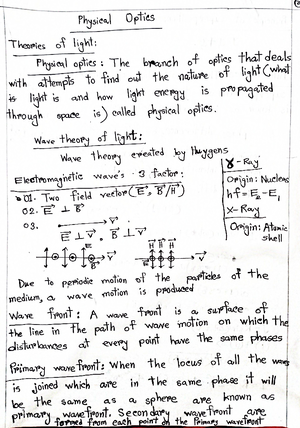 Physical Optics
Theories of light:
Physical optics: The branch of optics that deals
with attempts to find out the nature of light (what
is light is and how light energy is propagated
through space is) called physical optics.
Wave theory of light:
Wave theory created by Huygens
Electromagnetic wave's 3 factor:
01. Two field vector (E⃗, B⃗/H⃗)
02. E⃗ ⊥ B⃗
03. → V⃗
E⃗ ⊥ V⃗, B⃗ ⊥ V⃗
γ-Ray
Origin: Nucleus
hf = E₂ - E₁
X-Ray
Origin: Atomic
shell
E⃗ B⃗ V⃗
H⃗ H⃗ H⃗ V⃗
Due to periodic motion of the particles of the
medium, a wave motion is produced
Wave front: A wave front is a surface of
the line in the path of wave motion on which the
disturbances at every point have the same phases
Primary wavefront: When the locus of all the waves
is joined which are in the same phase it will
be the same as a sphere are known as
primary wavefront. Secondary wavefront are
formed from each point on the Primary wavefront